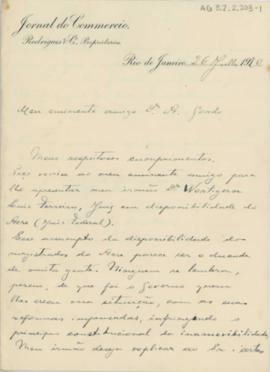 AG 8.2.2.203-1
Jornal do Commercio.
Rodrigues & C.ª, Proprietarios.
Rio de Janeiro, 26 Julho 1910
Meu eminente amigo Dr. A. Gordo
Meus respeitosos cumprimentos.
Esta visa ao meu eminente amigo para
lhe apresentar meu irmão Dr
Luiz Ferreira, Juiz em disponibilidade do
Acre (Juiz Federal).
Esse assumpto da disponibilidade dos
magistrados do Acre parece ser o
de muita gente. Ninguem se lembra,
porem, de que foi o Governo quem
lhes creou essa situação, com as suas
reformas, infringindo o
principio constitucional da inamovibilidade.
Meu irmão deseja explicar ao Sr. certos